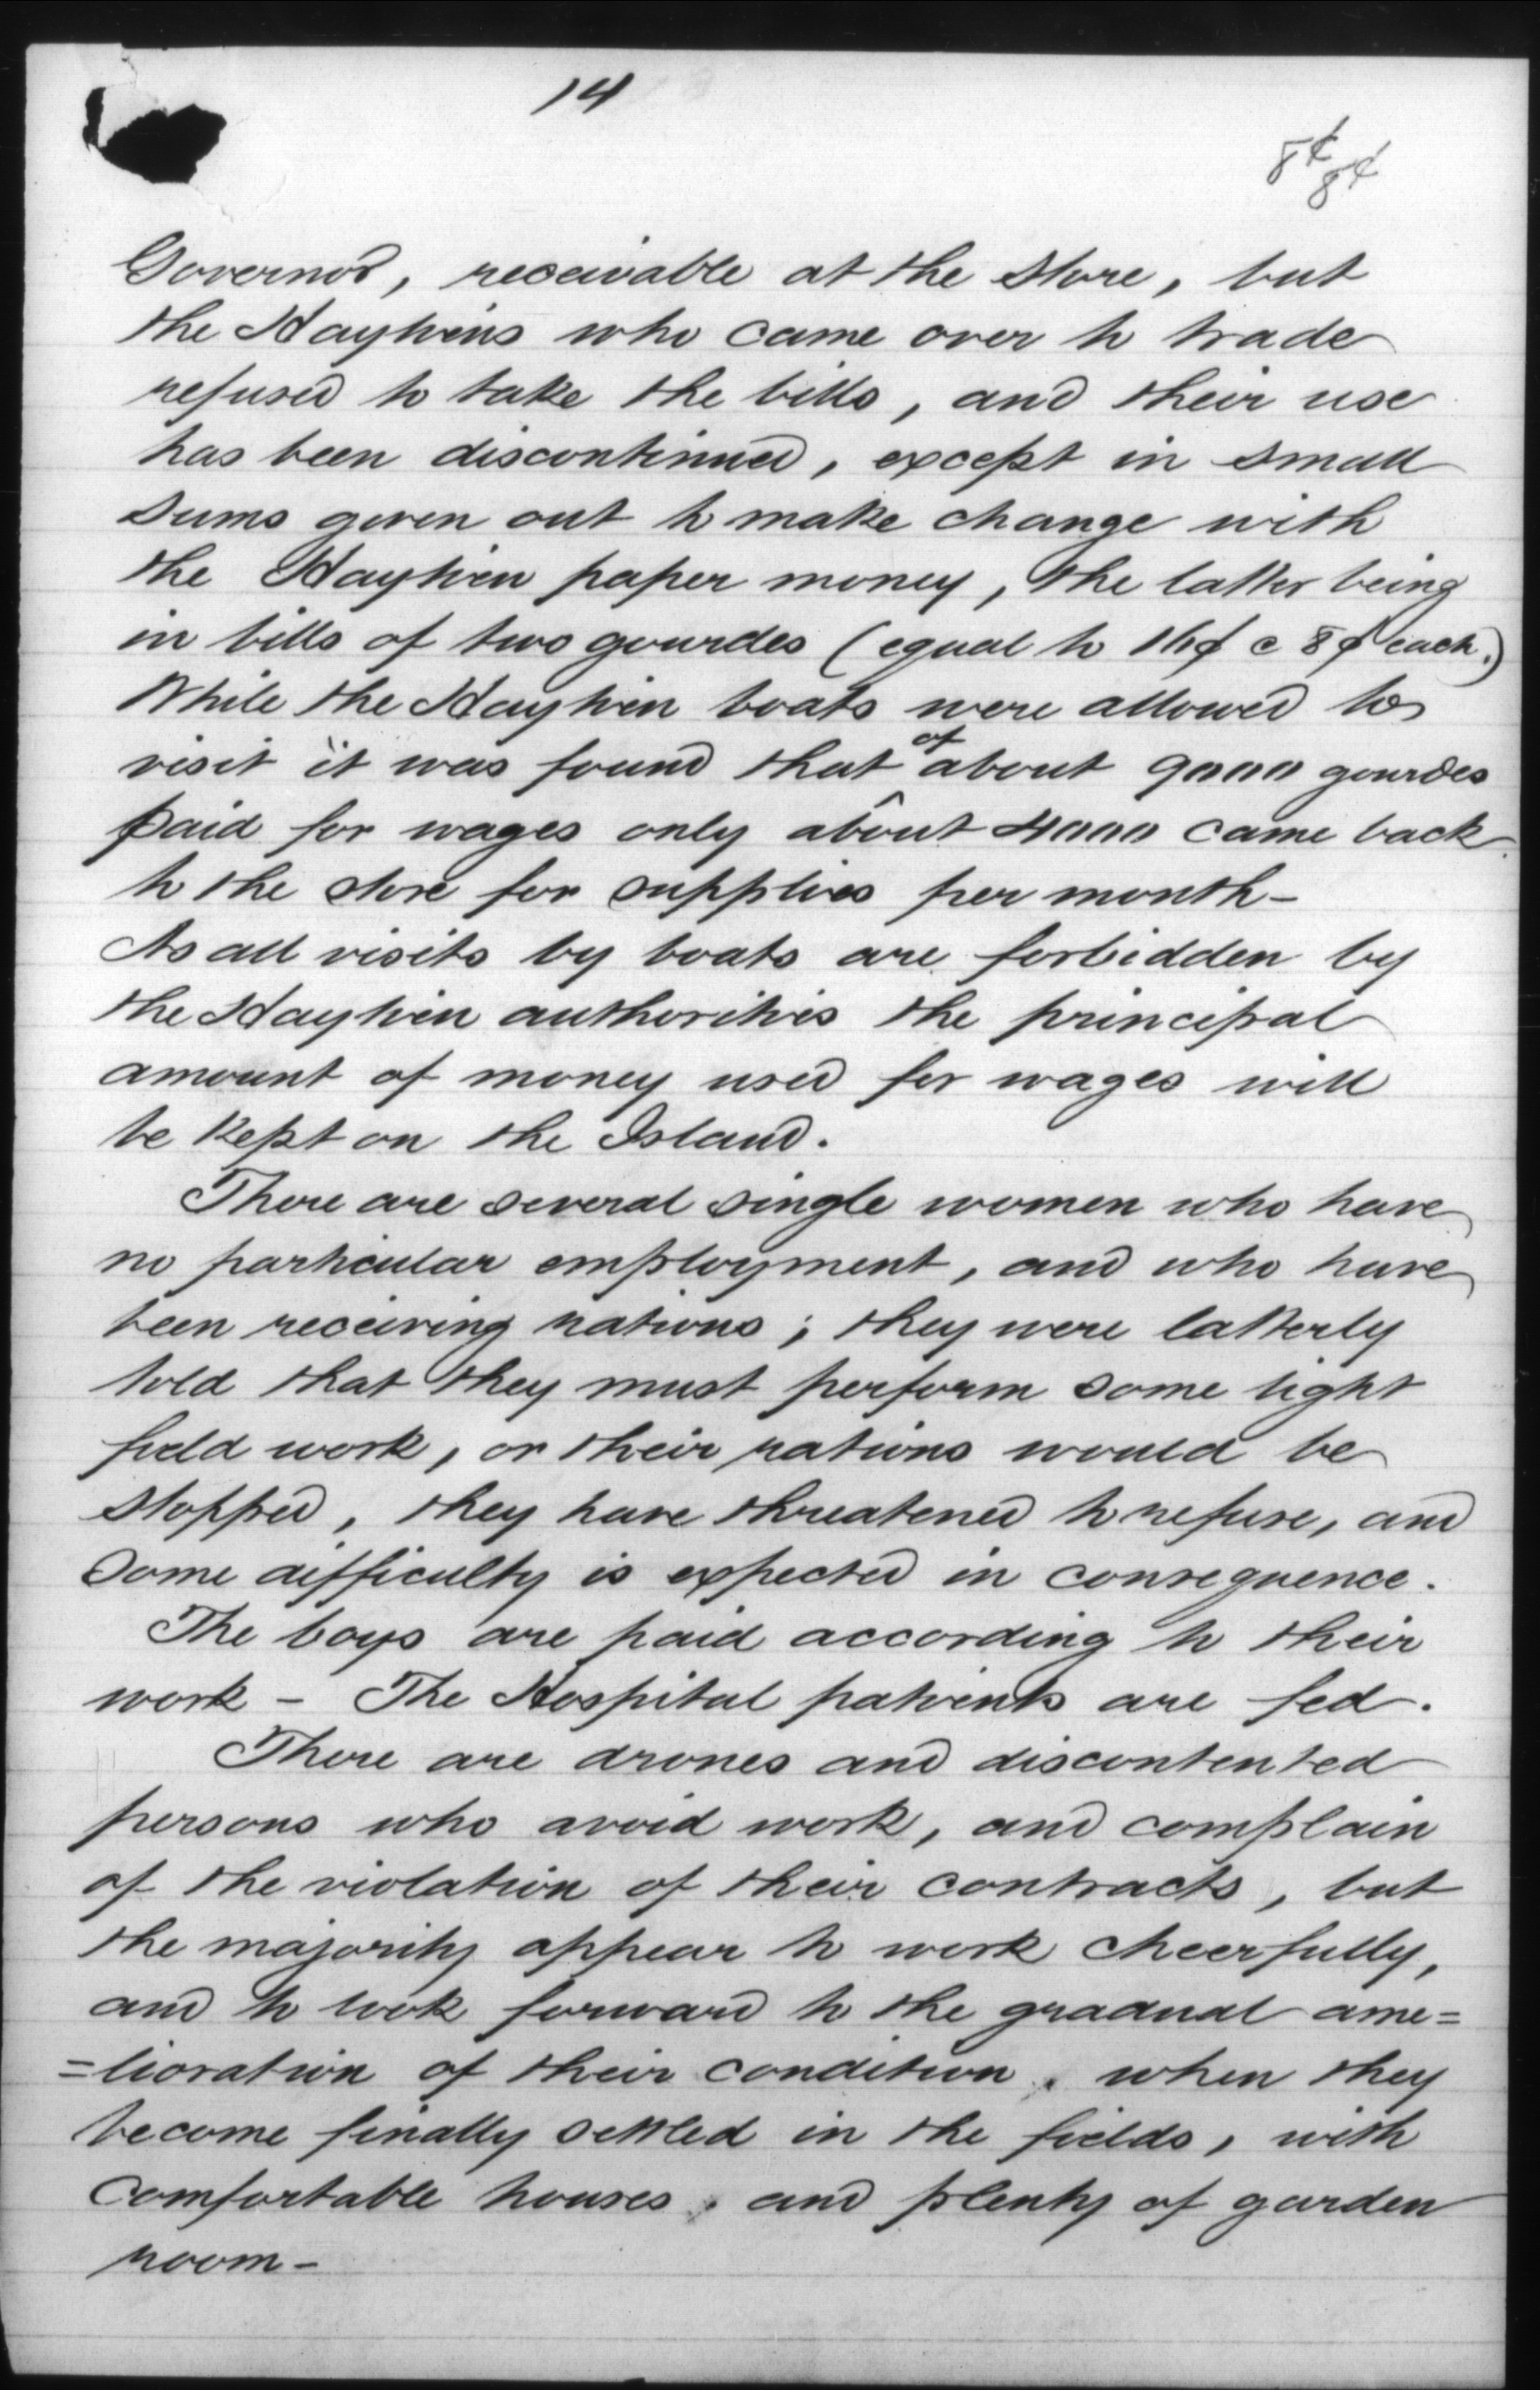 14
8¢
8¢
Governor, receivable at the store, but
the Haytiens who came over to trade
refused to take the bills, and their use
has been discontinued, except in small
sums given out to make change with
the Haytien paper money, the latter being
in bills of two gourdes (equal to 16¢ c 8¢ each.)
While the Haytien boats were allowed to
visit it was found that of about 9000 gourdes
paid for wages only about 4000 came back
to the store for supplies per month-
As all visits by boats are forbidden by
the Haytien authorities the principal
amount of money used for wages will
be kept on the Island.
There are several single women who have
no particular employment, and who have
been receiving rations; they were latterly
told that they must perform some light
field work, or their rations would be
stopped, they have threatened to refuse, and
some difficulty is expected in consequence.
The boys are paid according to their
work - The Hospital patients are fed.
There are drones and discontented
persons who avoid work, and complain
of the violation of their contracts, but
the majority appear to work cheerfully,
and to look forward to the gradual ame=
=lioration of their condition, when they
become finally settled in the fields, with
comfortable houses, and plenty of garden
room-